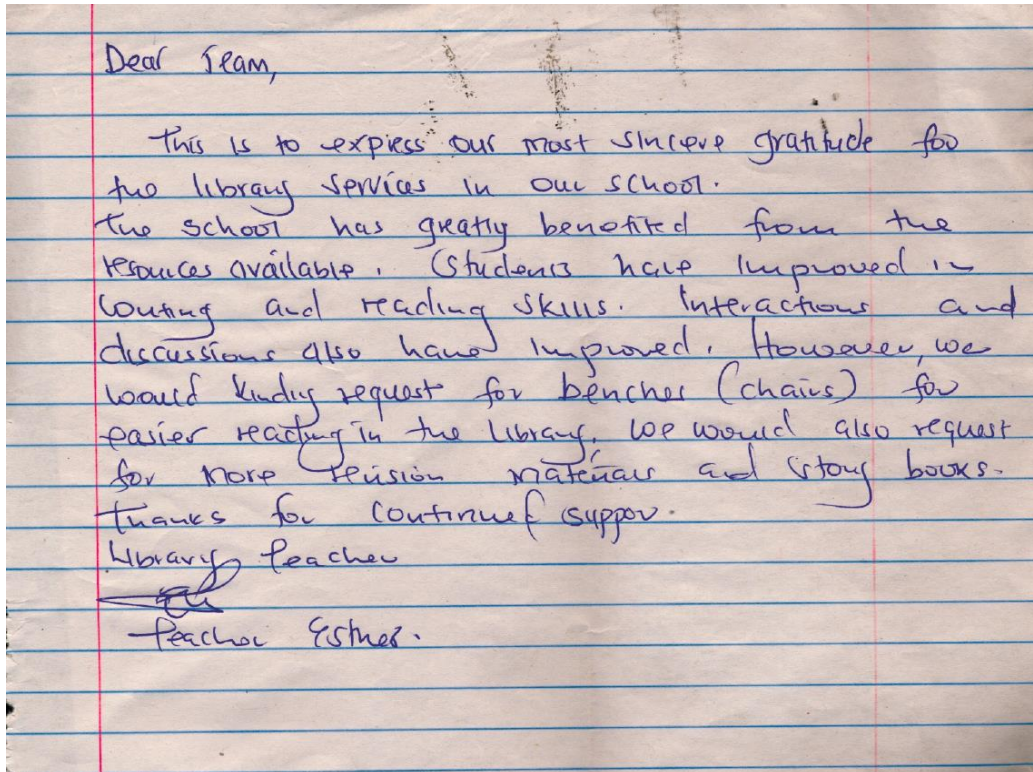 Dear Team,
This is to express our most sincere gratitude for
the library services in our school.
The school has greatly benefited from the
resources available. Students have improved in
writing and reading skills. Interactions and
discussions also have improved. However, we
would kindly request for benches (chairs) for
easier reading in the library. We would also request
for more revision materials and story books.
Thanks for continued suppor.
Library Teacher
Teacher Esther.